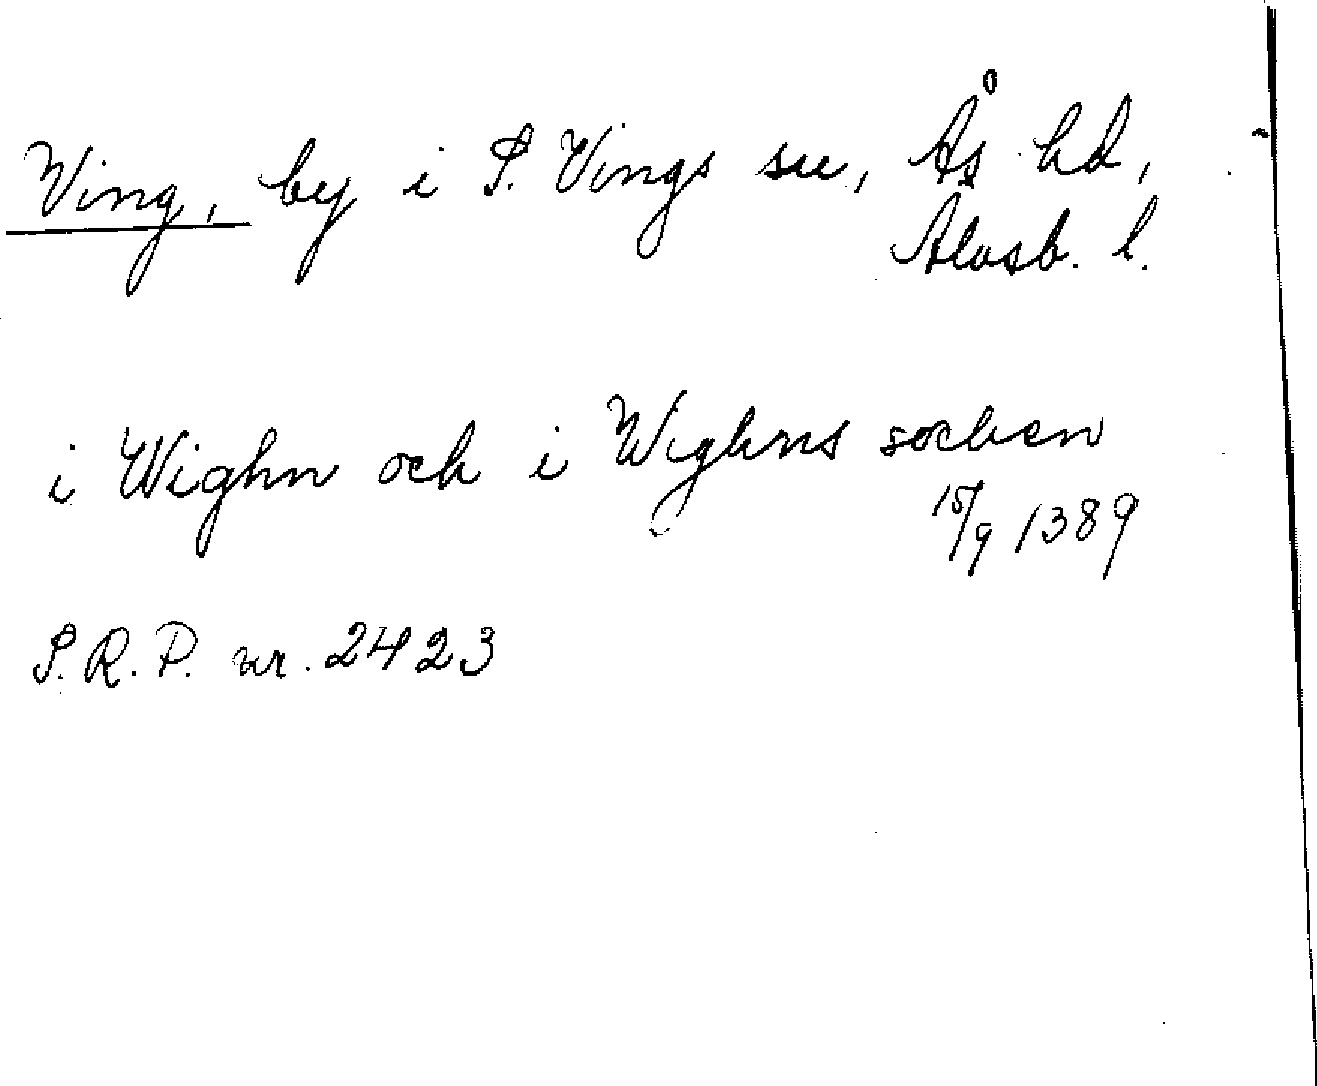 Ving, by i S. Vings sn, Ås hd,
Älvsb. l.
i Wighn och i Wighns socken
15/9 1389
S.R.P. nr. 2423